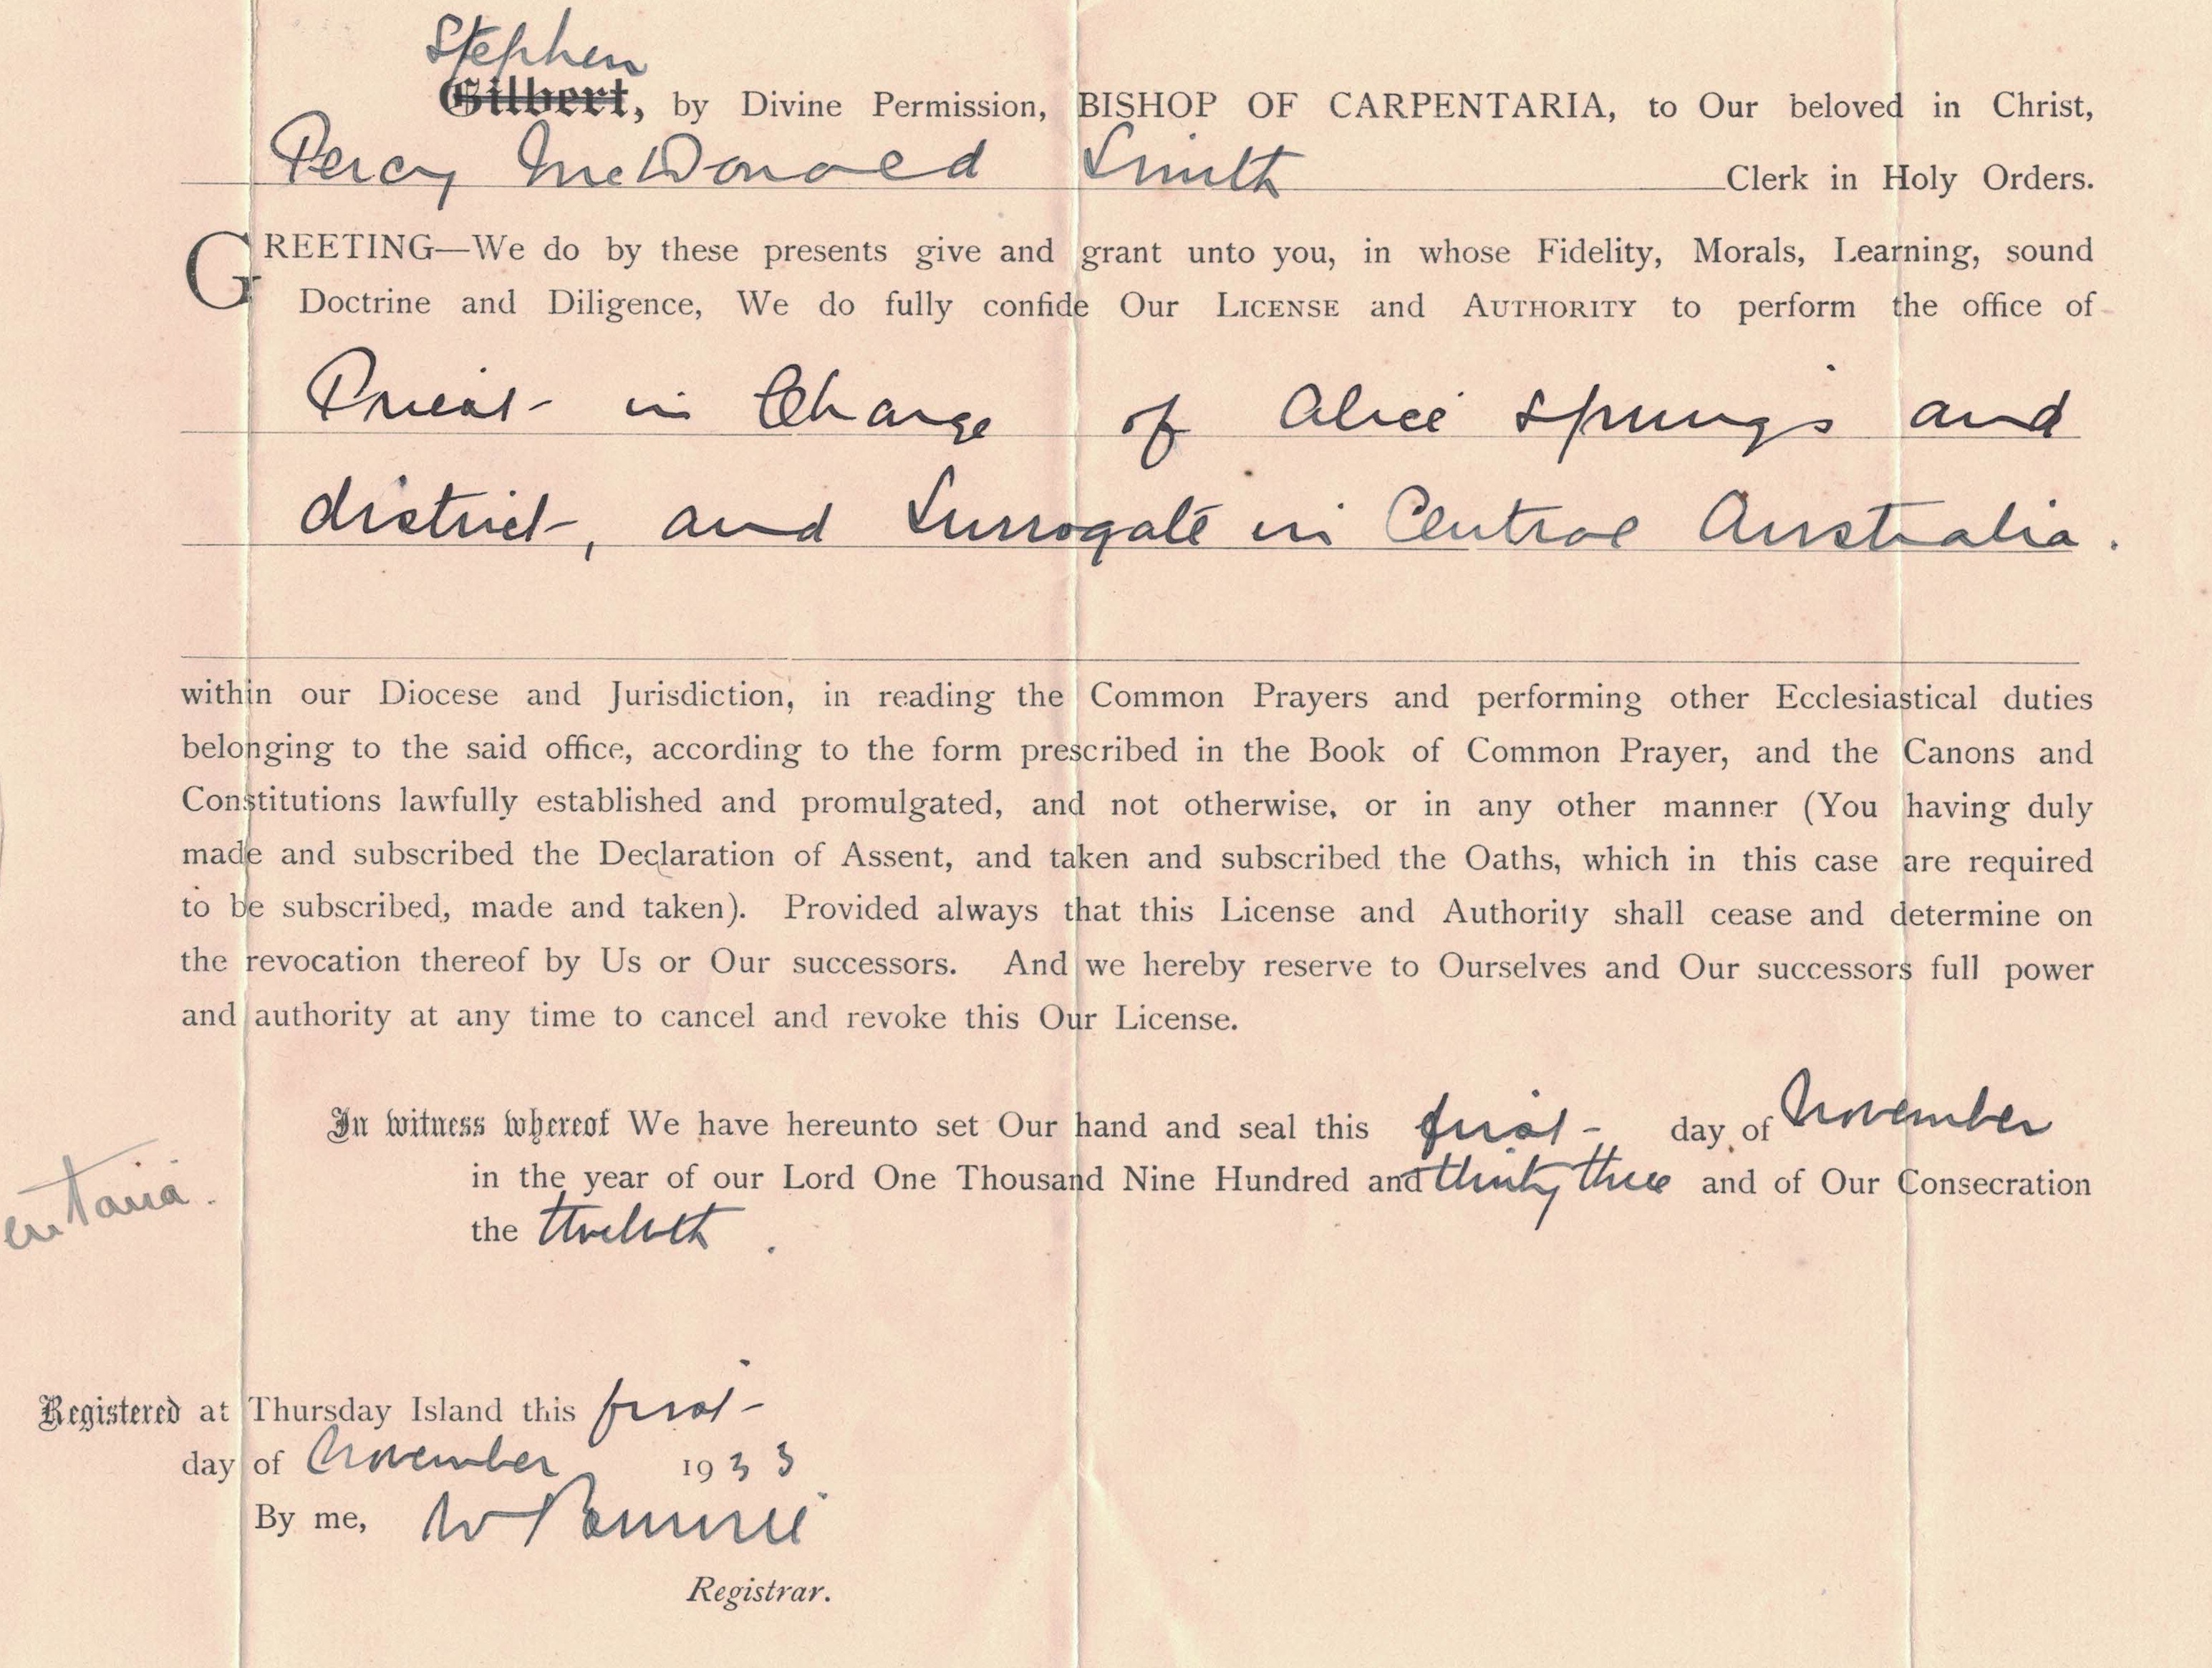 Stephen
Gilbert, by Divine Permission, BISHOP OF CARPENTARIA, to Our beloved in Christ,
Percy McDonald Smith Clerk in Holy Orders.
GREETING—We do by these presents give and grant unto you, in whose Fidelity, Morals, Learning, sound
Doctrine and Diligence, We do fully confide Our LICENSE and AUTHORITY to perform the office of
Priest in Charge of Alice Springs and
district, and Surrogate in Central Australia.
within our Diocese and Jurisdiction, in reading the Common Prayers and performing other Ecclesiastical duties
belonging to the said office, according to the form prescribed in the Book of Common Prayer, and the Canons and
Constitutions lawfully established and promulgated, and not otherwise, or in any other manner (You having duly
made and subscribed the Declaration of Assent, and taken and subscribed the Oaths, which in this case are required
to be subscribed, made and taken). Provided always that this License and Authority shall cease and determine on
the revocation thereof by Us or Our successors. And we hereby reserve to Ourselves and Our successors full power
and authority at any time to cancel and revoke this Our License.
In witness whereof We have hereunto set Our hand and seal this first day of November
in the year of our Lord One Thousand Nine Hundred and thirty three and of Our Consecration
the twelfth.
entaria.
Registered at Thursday Island this first
day of November 1933
By me, W
Registrar.